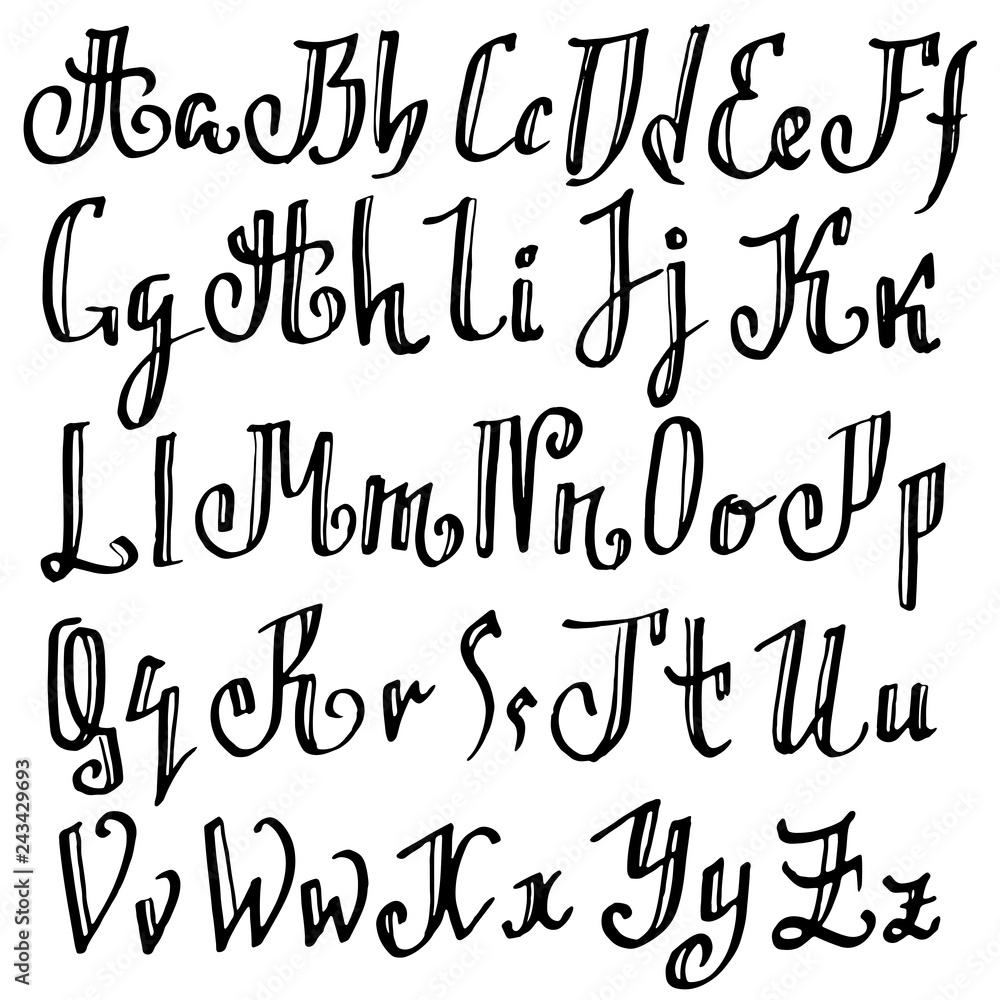 Aa Bb Cc Dd Ee Ff
Gg Hh Ii Jj Kk
Ll Mm Nn Oo Pp
Qq Rr Ss Tt Uu
Vv Ww Xx Yy Zz
Adobe Stock | #243429693